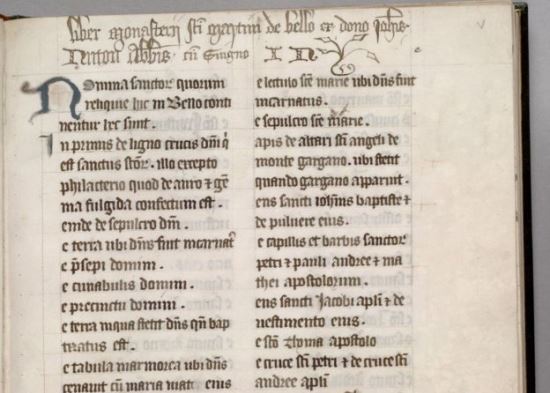 liber monasterij sti martini de bello ex dono Johis
Newton abbis. cu signo I N
59
Nomina sanctor quorum
reliquie hic in Bello conti
nentur hec sunt.
In primis de ligno crucis dni q
est sanctus stor. illo excepto
philacterio quod de auro ⁊ ge
ma fulgida confectum est.
e de sepulcro dni.
e terra ubi dns fuit incarnat
e psepi domini.
e cunabulis domini.
e precinctu domini.
e terra inqua stetit dns qn bap
tizatus est.
e tabula marmorea ubi dns
cenavit cu maria matre eius
e lectulo sce marie ubi dns fuit
incarnatus.
e sepulcro sce marie.
apis de altari sti angeli de
monte gargano. ubi stetit
quando gargano apparuit.
ens sancti iohis baptiste ⁊
de pulvere eius.
e capillis et barbis sanctor
petri ⁊ pauli andree ⁊ ma
thei apostolorum.
ens sancti Jacobi apli ⁊ de
vestimento eius.
e sto Thoma apostolo
e cruce sti petri ⁊ de cruce sti
andree apli